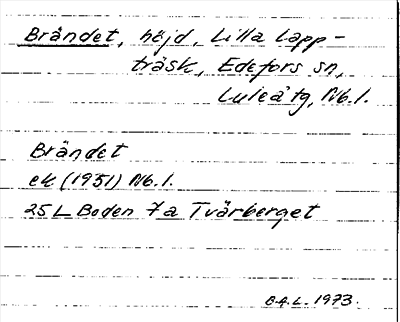 Brändet, höjd, Lilla Lapp-
träsk, Edefors sn,
Luleå tg, Nb.l.
Brändet
ek (1951) Nb.l.
25 L Boden 7a Tvärberget
1973.